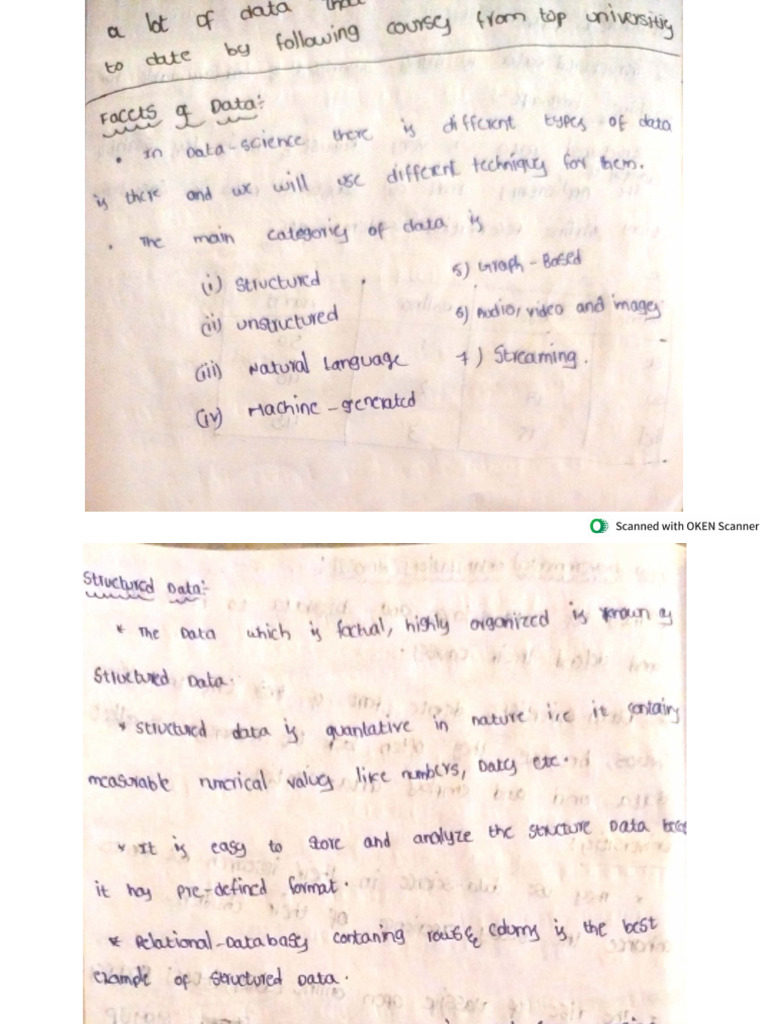 a lot of data that
to date by following courses from top universities
Facets of Data:
• In Data-science there is different types of data
is there and we will use different techniques for them.
• The main categories of data is
(i) Structured
(ii) unstructured
(iii) Natural Language
(iv) Machine-generated
5) Graph-Based
6) Audio, video and images
7) Streaming.
Scanned with OKEN Scanner
Structured Data:-
* The Data which is factual, highly organized is known as
Structured Data.
* structured data is quantative in nature i.e it contains
measurable numerical values like numbers, Dates etc.
* It is easy to store and analyze the structure Data
it has pre-defined format.
* Relational-Databases contaning rows & colums is, the best
example of structured Data.